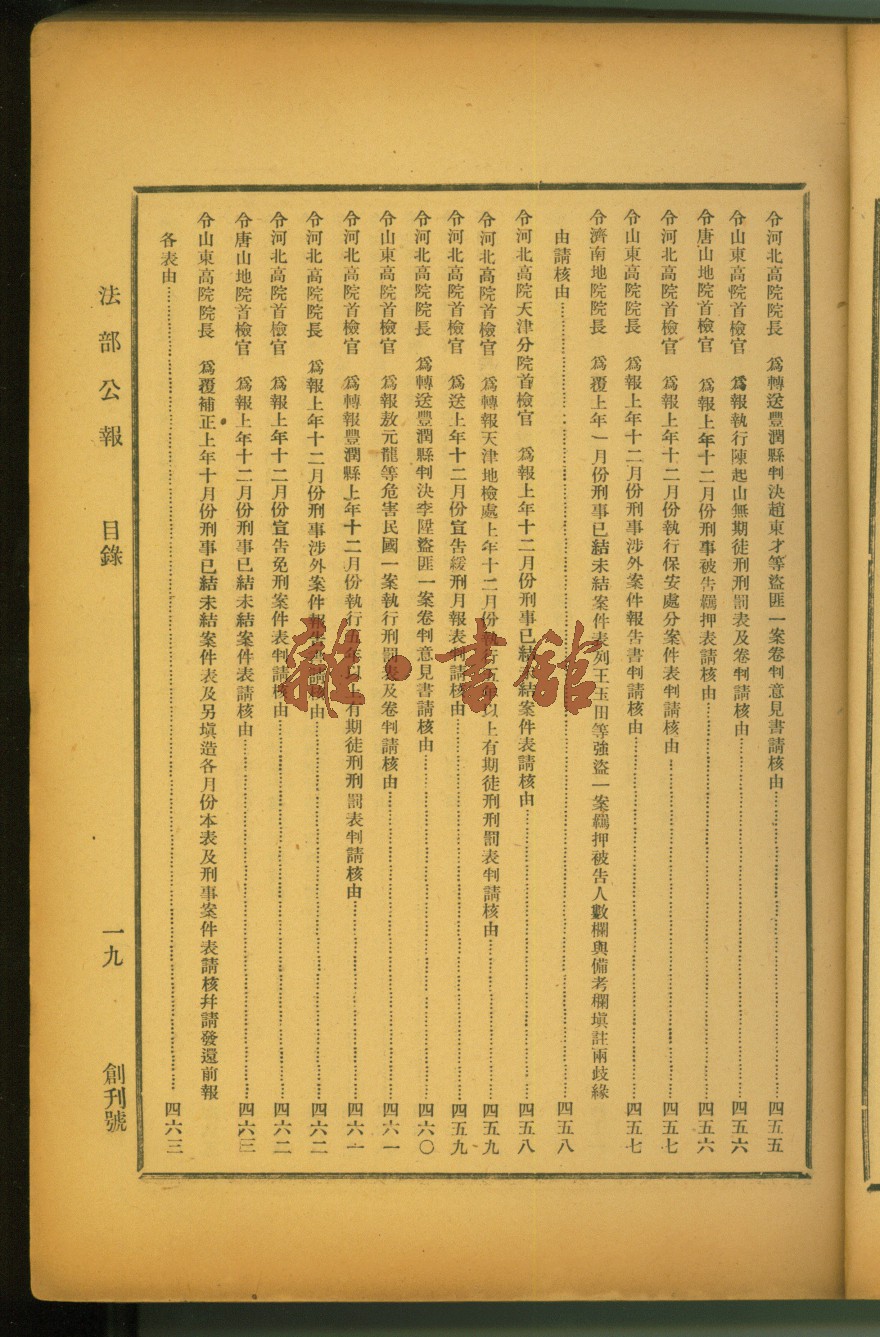 令河北高院院長　爲轉送豐潤縣判決趙東才等盜匪一案卷判意見書請核由……四五五
令山東高院首檢官　爲報執行陳起山無期徒刑刑罰表及卷判請核由……四五六
令唐山地院首檢官　爲報上年十二月份刑事被告羈押表請核由……四五六
令河北高院首檢官　爲報上年十二月份執行保安處分案件表判請核由……四五七
令山東高院院長　爲報上年十二月份刑事涉外案件報告書判請核由……四五七
令濟南地院院長　爲覆上年一月份刑事已結未結案件表列王玉田等強盜一案羈押被告人數欄與備考欄塡註兩歧緣
由請核由……四五八
令河北高院天津分院首檢官　爲報上年十二月份刑事已結未結案件表請核由……四五八
令河北高院首檢官　爲轉報天津地檢處上年十二月份執行五年以上有期徒刑刑罰表判請核由……四五九
令山東高院首檢官　爲送上年十二月份宣告緩刑月報表判請核由……四五九
令河北高院院長　爲轉送豐潤縣判決李陞盜匪一案卷判意見書請核由……四六〇
令山東高院首檢官　爲報敖元龍等危害民國一案執行刑罰表及卷判請核由……四六一
令河北高院首檢官　爲轉報豐潤縣上年十二月份執行五年以上有期徒刑刑罰表判請核由……四六一
令河北高院院長　爲報上年十二月份刑事涉外案件報告書請核由……四六二
令河北高院首檢官　爲報上年十二月份宣告免刑案件表判請核由……四六二
令唐山地院首檢官　爲報上年十二月份刑事已結未結案件表請核由……四六三
令山東高院院長　爲覆補正上年十月份刑事已結未結案件表及另塡造各月份本表及刑事案件表請核幷請發還前報
各表由……四六三
法部公報　目錄　一九　創刊號
雜·書館